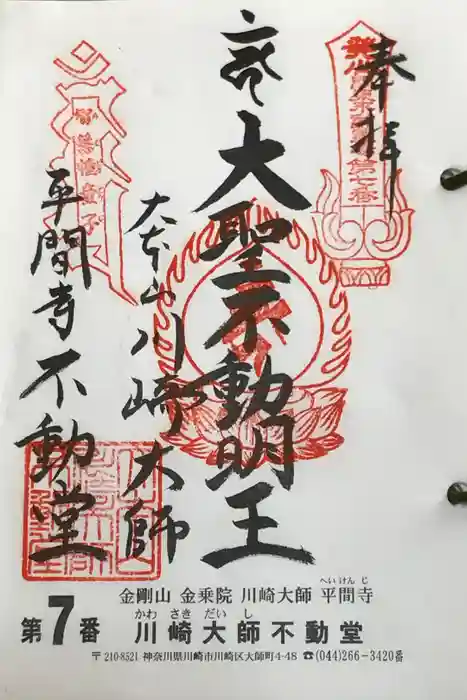 奉拝
大聖不動明王
大本山川崎大師
平間寺不動堂
金剛山 金乗院 川崎大師 平間寺
へいけんじ
第7番 川崎大師不動堂
かわさきだいし
〒210-8521 神奈川県川崎市川崎区大師町4-48 ☎(044)266-3420番